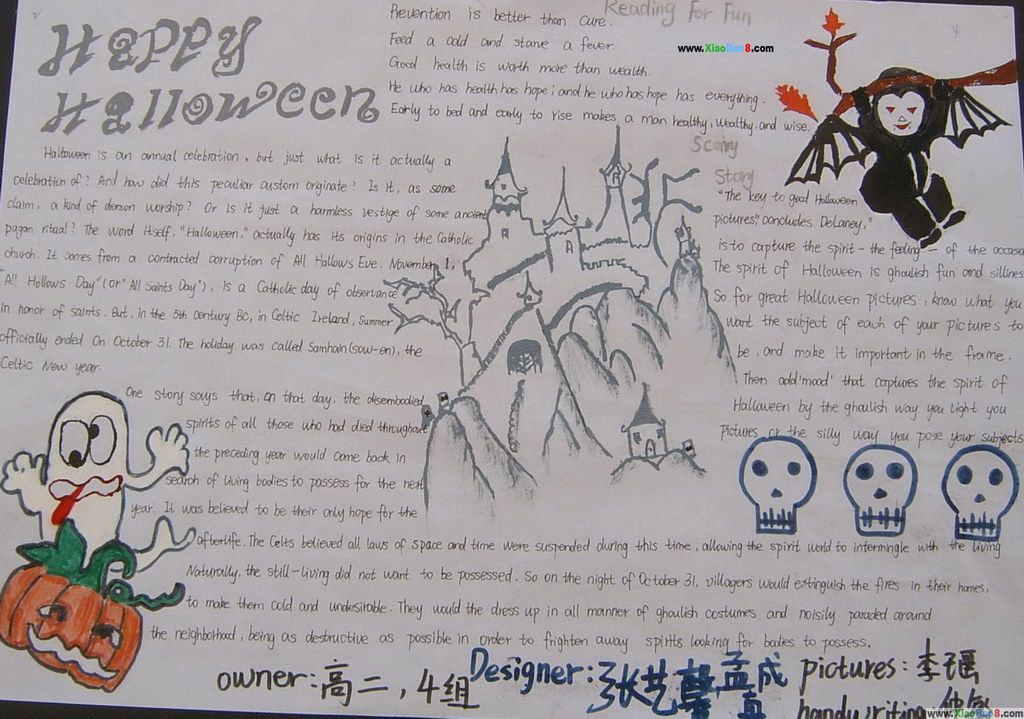 Happy
Halloween
Reading For Fun
Prevention is better than cure.
Feed a cold and starve a fever.
Good health is worth more than wealth.
He who has health has hope; and he who has hope has everything.
Early to bed and early to rise makes a man healthy, wealthy, and wise.
www.XiaoBao8.com
Halloween is an annual celebration, but just what is it actually a
celebration of? And how did this peculiar custom originate? Is it, as some
claim, a kind of demon worship? Or is it just a harmless vestige of some ancient
pagan ritual? The word itself, "Halloween," actually has its origins in the Catholic
church. It comes from a contracted corruption of All Hallows Eve. November 1,
"All Hollows Day" (or "All Saints Day"), is a Catholic day of observance
in honor of saints. But, in the 5th century BC, in Celtic Ireland, summer
officially ended On October 31. The holiday was called Samhain (sow-en), the
Celtic New year.
One story says that, on that day, the disembodied
spirits of all those who had died throughout
the preceding year would come back in
search of living bodies to possess for the next
year. It was believed to be their only hope for the
afterlife. The Celts believed all laws of space and time were suspended during this time, allowing the spirit world to intermingle with the living
Naturally, the still-living did not want to be possessed. So on the night of October 31, villagers would extinguish the fires in their homes,
to make them cold and undesirable. They would the dress up in all manner of ghoulish costumes and noisily paraded around
the neighborhood, being as destructive as possible in order to frighten away spirits looking for bodies to possess.
Scary
Story
"The key to good Halloween
pictures," concludes DeLaney,"
is to capture the spirit - the feeling - of the occasion
The spirit of Halloween is ghoulish fun and silliness
So for great Halloween pictures, know what you
want the subject of each of your pictures to
be, and make it important in the frame.
Then add 'mood' that captures the spirit of
Halloween by the ghoulish way you light you
pictures or the silly way you pose your subjects
owner: 高二, 4组
Designer: 张艺馨 孟成真
pictures: 李瑶
handwriting
www.XiaoBao8.com